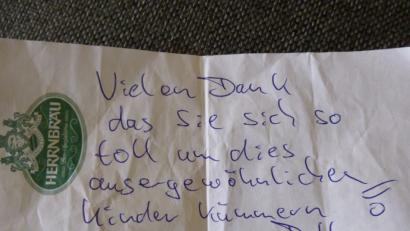 HERRNBRÄU
Vielen Dank
das Sie sich so
toll um dies
ausergewöhnlichen
Kinder kümmern